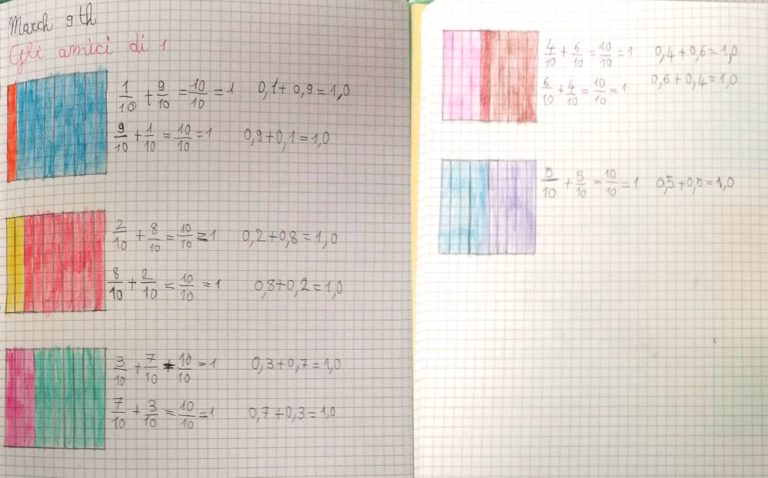 March 9th
Gli amici di 1
1/10 + 9/10 = 10/10 = 1 0,1 + 0,9 = 1,0
9/10 + 1/10 = 10/10 = 1 0,9 + 0,1 = 1,0
2/10 + 8/10 = 10/10 = 1 0,2 + 0,8 = 1,0
8/10 + 2/10 = 10/10 = 1 0,8 + 0,2 = 1,0
3/10 + 7/10 = 10/10 = 1 0,3 + 0,7 = 1,0
7/10 + 3/10 = 10/10 = 1 0,7 + 0,3 = 1,0
4/10 + 6/10 = 10/10 = 1 0,4 + 0,6 = 1,0
6/10 + 4/10 = 10/10 = 1 0,6 + 0,4 = 1,0
5/10 + 5/10 = 10/10 = 1 0,5 + 0,5 = 1,0